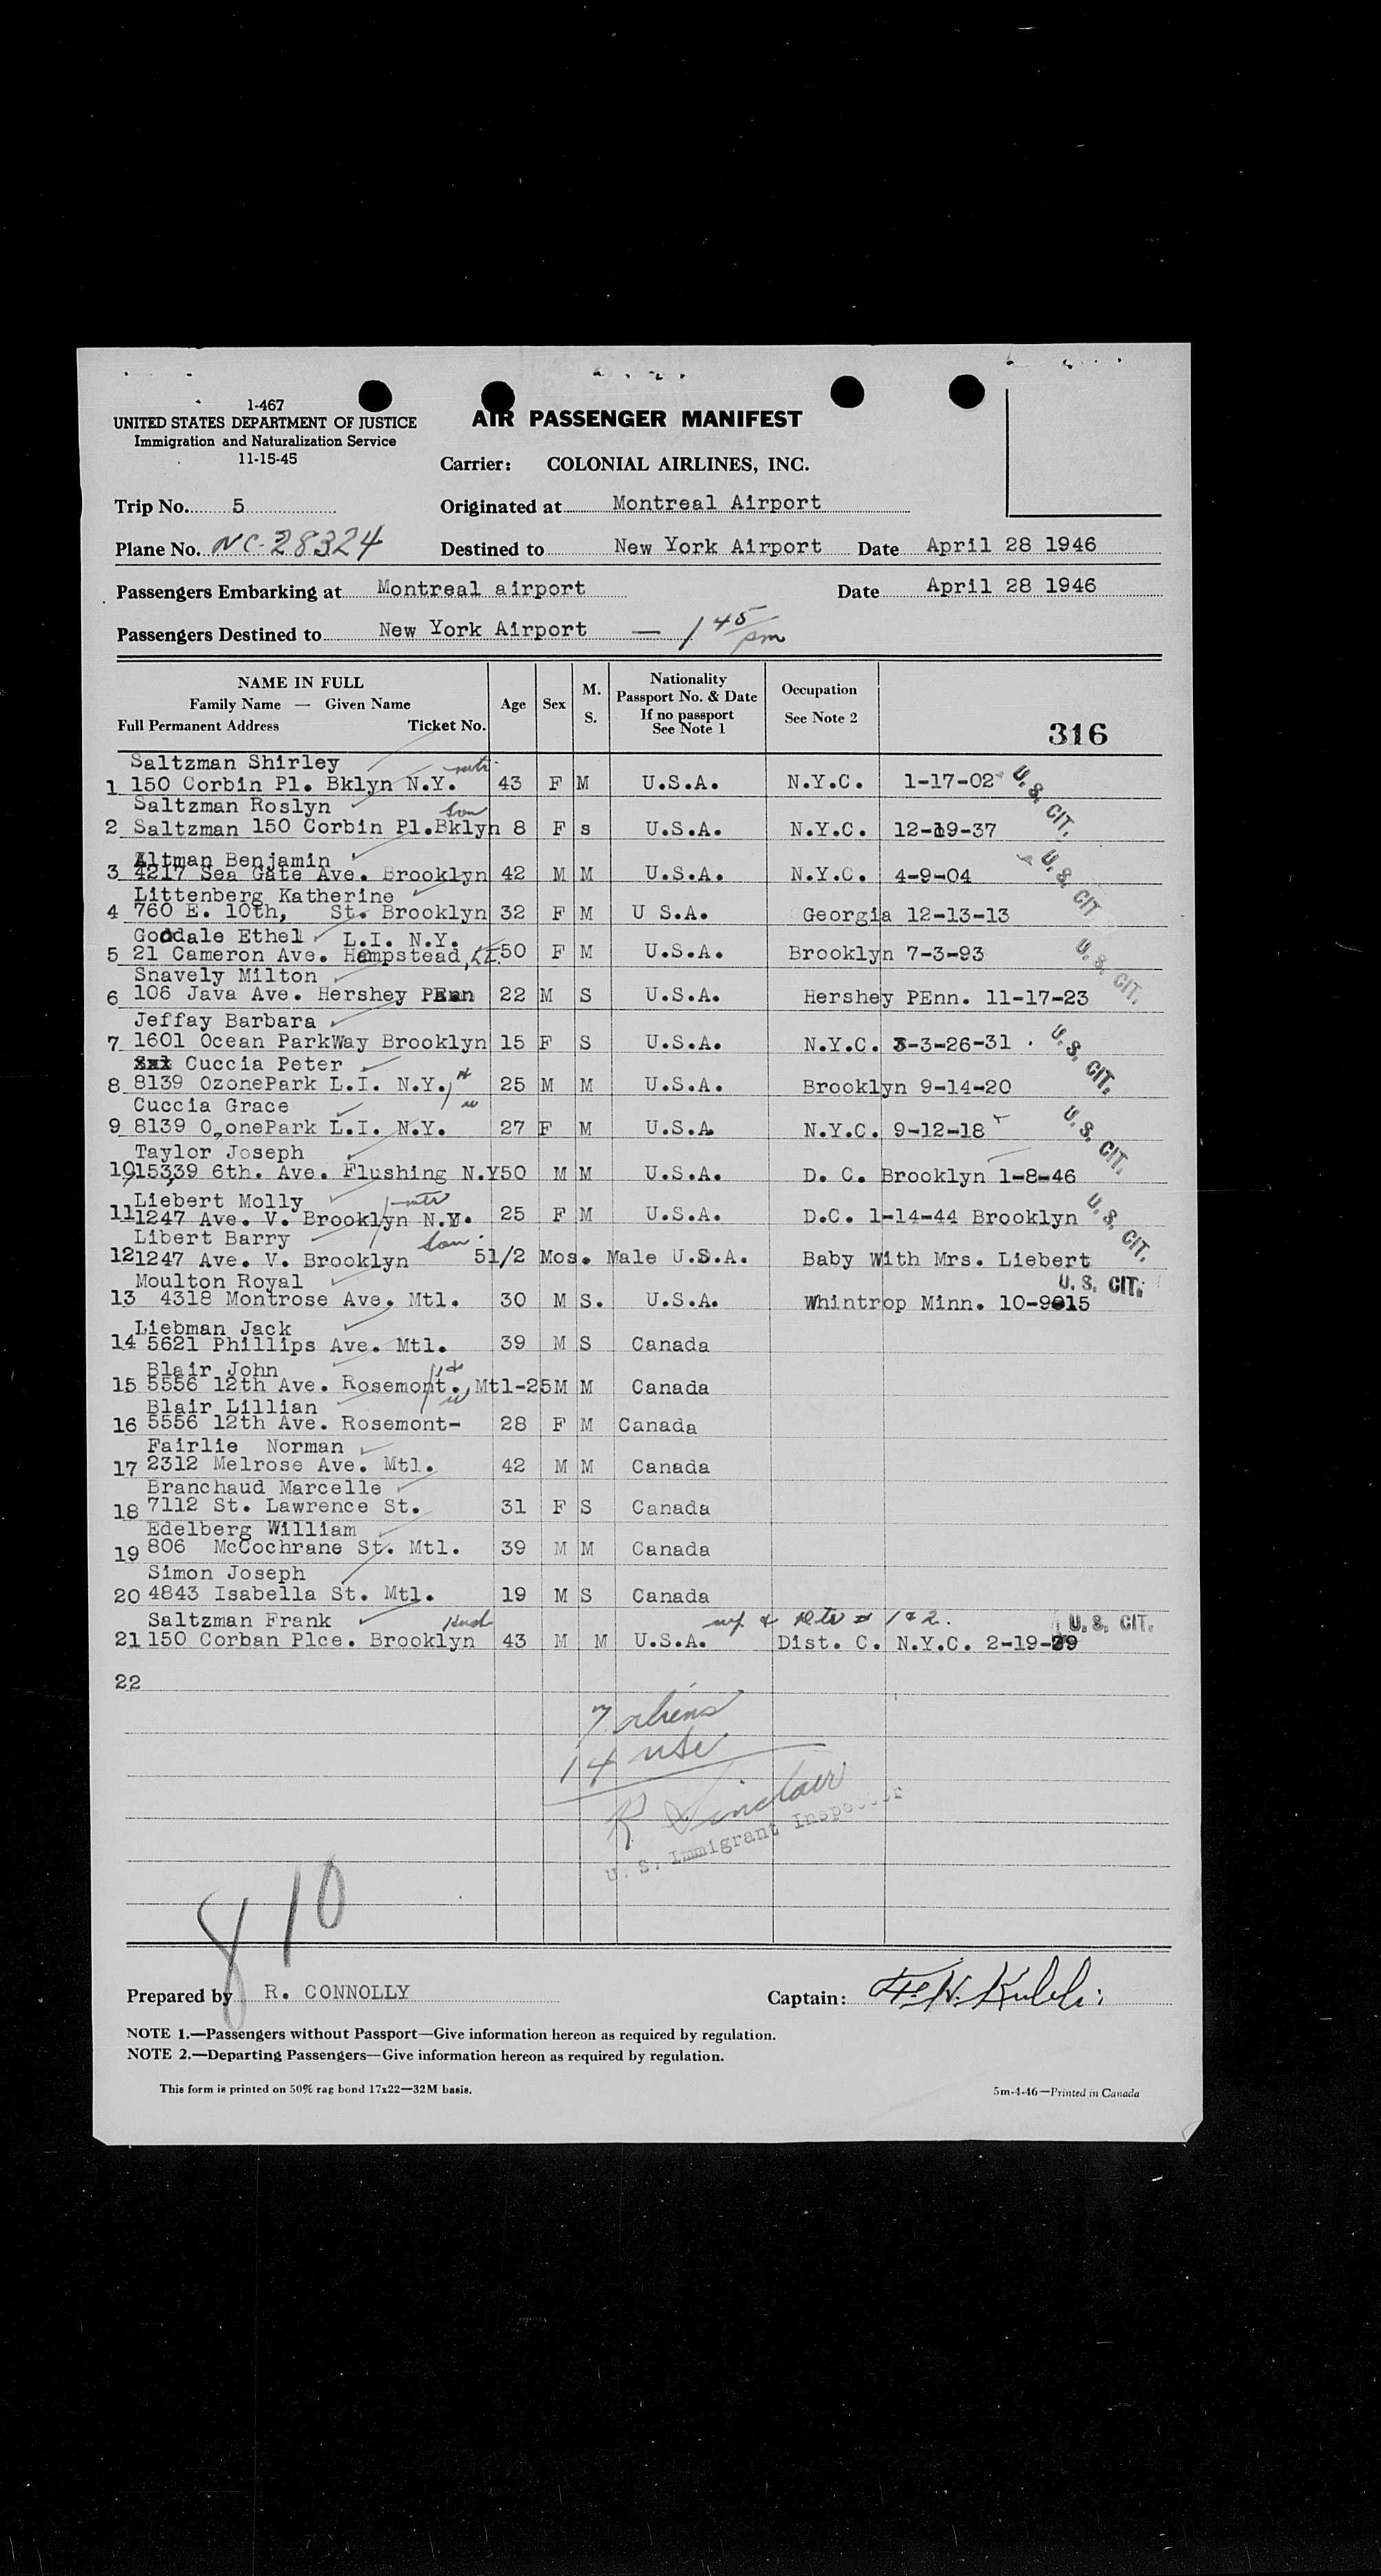 1-467
UNITED STATES DEPARTMENT OF JUSTICE
Immigration and Naturalization Service
11-15-45
AIR PASSENGER MANIFEST
Carrier: COLONIAL AIRLINES, INC.
Trip No. 5 Originated at Montreal Airport
Plane No. NC-28324 Destined to New York Airport Date April 28 1946
Passengers Embarking at Montreal airport Date April 28 1946
Passengers Destined to New York Airport — 1 45/pm
NAME IN FULL
Family Name — Given Name
Full Permanent Address Ticket No.
Age Sex M. S.
Nationality
Passport No. & Date
If no passport
See Note 1
Occupation
See Note 2
316
Saltzman Shirley
1 150 Corbin Pl. Bklyn N.Y. 43 F M U.S.A. N.Y.C. 1-17-02 U.S. CIT.
Saltzman Roslyn
2 Saltzman 150 Corbin Pl.Bklyn 8 F s U.S.A. N.Y.C. 12-19-37
Altman Benjamin
3 4217 Sea Gate Ave. Brooklyn 42 M M U.S.A. N.Y.C. 4-9-04 U.S. CIT
Littenberg Katherine
4 760 E. 10th, St. Brooklyn 32 F M U S.A. Georgia 12-13-13
Goodale Ethel L.I. N.Y.
5 21 Cameron Ave. Hempstead, 50 F M U.S.A. Brooklyn 7-3-93 U.S. CIT.
Snavely Milton
6 106 Java Ave. Hershey PEnn 22 M S U.S.A. Hershey PEnn. 11-17-23
Jeffay Barbara
7 1601 Ocean ParkWay Brooklyn 15 F S U.S.A. N.Y.C. 3-3-26-31 U.S. CIT.
Cuccia Peter
8 8139 OzonePark L.I. N.Y. 25 M M U.S.A. Brooklyn 9-14-20
Cuccia Grace
9 8139 O,onePark L.I. N.Y. 27 F M U.S.A N.Y.C. 9-12-18 U.S. CIT.
Taylor Joseph
10 15339 6th. Ave. Flushing N.Y 50 M M U.S.A. D. C. Brooklyn 1-8-46
Liebert Molly
11 1247 Ave. V. Brooklyn N.Y. 25 F M U.S.A. D.C. 1-14-44 Brooklyn U.S. CIT.
Libert Barry
12 1247 Ave. V. Brooklyn 51/2 Mos. Male U.S.A. Baby With Mrs. Liebert
Moulton Royal U.S. CIT.
13 4318 Montrose Ave. Mtl. 30 M S. U.S.A. Whintrop Minn. 10-9015
Liebman Jack
14 5621 Phillips Ave. Mtl. 39 M S Canada
Blair John
15 5556 12th Ave. Rosemont., Mtl-25 M M Canada
Blair Lillian
16 5556 12th Ave. Rosemont- 28 F M Canada
Fairlie Norman
17 2312 Melrose Ave. Mtl. 42 M M Canada
Branchaud Marcelle
18 7112 St. Lawrence St. 31 F S Canada
Edelberg William
19 806 McCochrane St. Mtl. 39 M M Canada
Simon Joseph
20 4843 Isabella St. Mtl. 19 M S Canada
Saltzman Frank Husb # 1 & 2. U.S. CIT.
21 150 Corban Plce. Brooklyn 43 M M U.S.A. Dist. C. N.Y.C. 2-19-29
22
7 aliens
14 usc
R Sinclair
U. S. Immigrant Inspector
810
Prepared by R. CONNOLLY Captain:
NOTE 1.—Passengers without Passport—Give information hereon as required by regulation.
NOTE 2.—Departing Passengers—Give information hereon as required by regulation.
This form is printed on 50% rag bond 17x22—32M basis. 5m-4-46—Printed in Canada